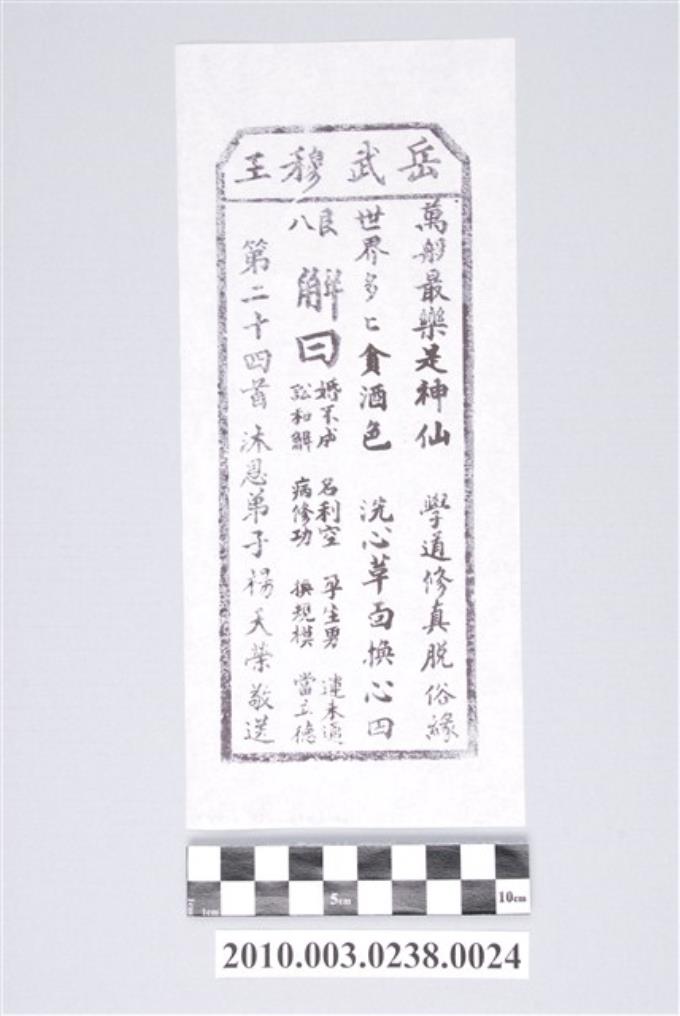 岳武穆王
萬般最樂是神仙　學道修真脫俗緣
世界多匕貪酒色　洗心革面換心田
八艮
解曰
婚不成　名利空　孕生男　運未通
訟和解　病修功　換規模　當立德
第二十四首沐恩弟子楊天榮敬送
1cm
5cm
10cm
2010.003.0238.0024